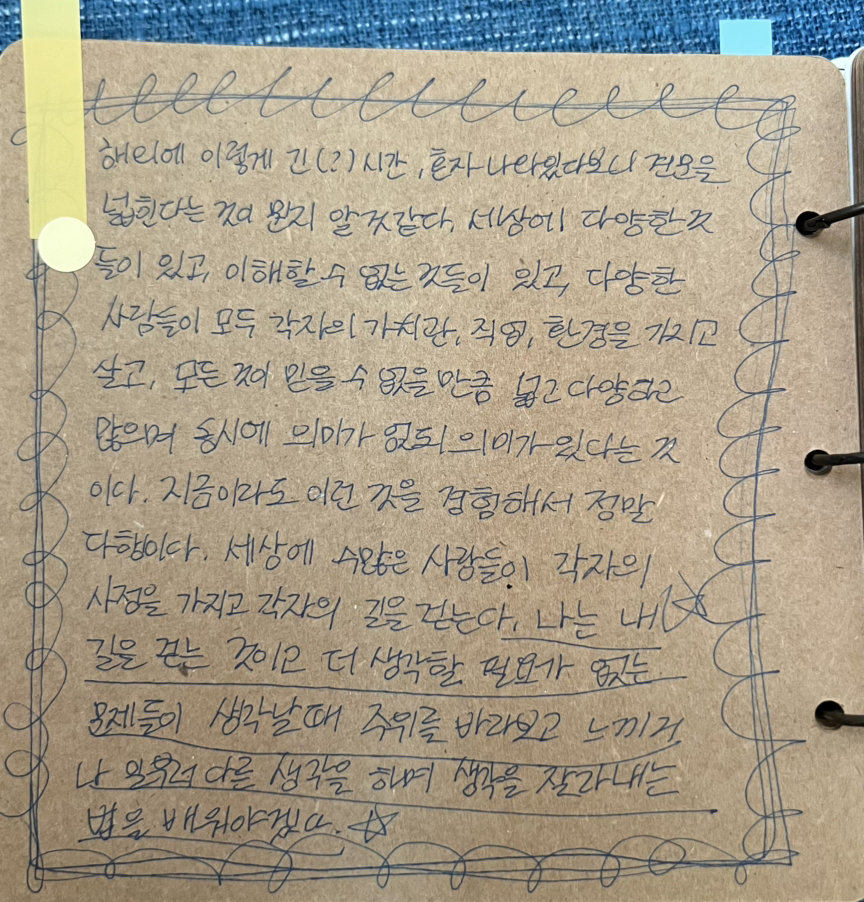 해외에 이렇게 긴(?) 시간, 혼자 나와있다보니 견문을
넓힌다는 것이 뭔지 알 것 같다. 세상에 다양한 것
들이 있고, 이해할 수 없는 것들이 있고, 다양한
사람들이 모두 각자의 가치관, 직업, 환경을 가지고
살고, 모든 것이 믿을 수 없을 만큼 넓고 다양하고
많으며 동시에 의미가 없되 의미가 있다는 것
이다. 지금이라도 이런 것을 경험해서 정말
다행이다. 세상에 수많은 사람들이 각자의
사정을 가지고 각자의 길을 걷는다. 나는 내
길을 걷는 것이고 더 생각할 필요가 없는
문제들이 생각날 때 주위를 바라보고 느끼거
나 일부러 다른 생각을 하며 생각을 잘라내는
법을 배워야겠다.